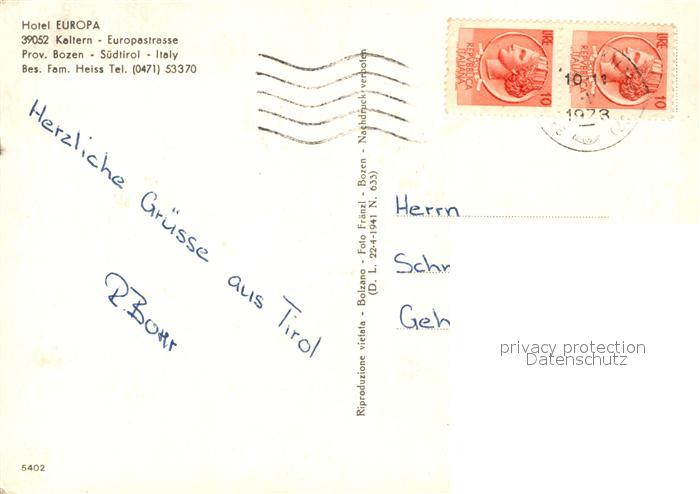 Hotel EUROPA
39052 Kaltern - Europastrasse
Prov. Bozen - Südtirol - Italy
Bes. Fam. Heiss Tel. (0471) 53370
LIRE
REPVBBLICA
ITALIANA
10
LIRE
REPVBBLICA
ITALIANA
10
1973
Herzliche Grüsse aus Tirol
R.
Riproduzione vietata - Bolzano - Foto Fränzl - Bozen - Nachdruck verboten
(D. L. 22-4-1941 N. 633)
Herrn
Schr
Geh
privacy protection
Datenschutz
5402